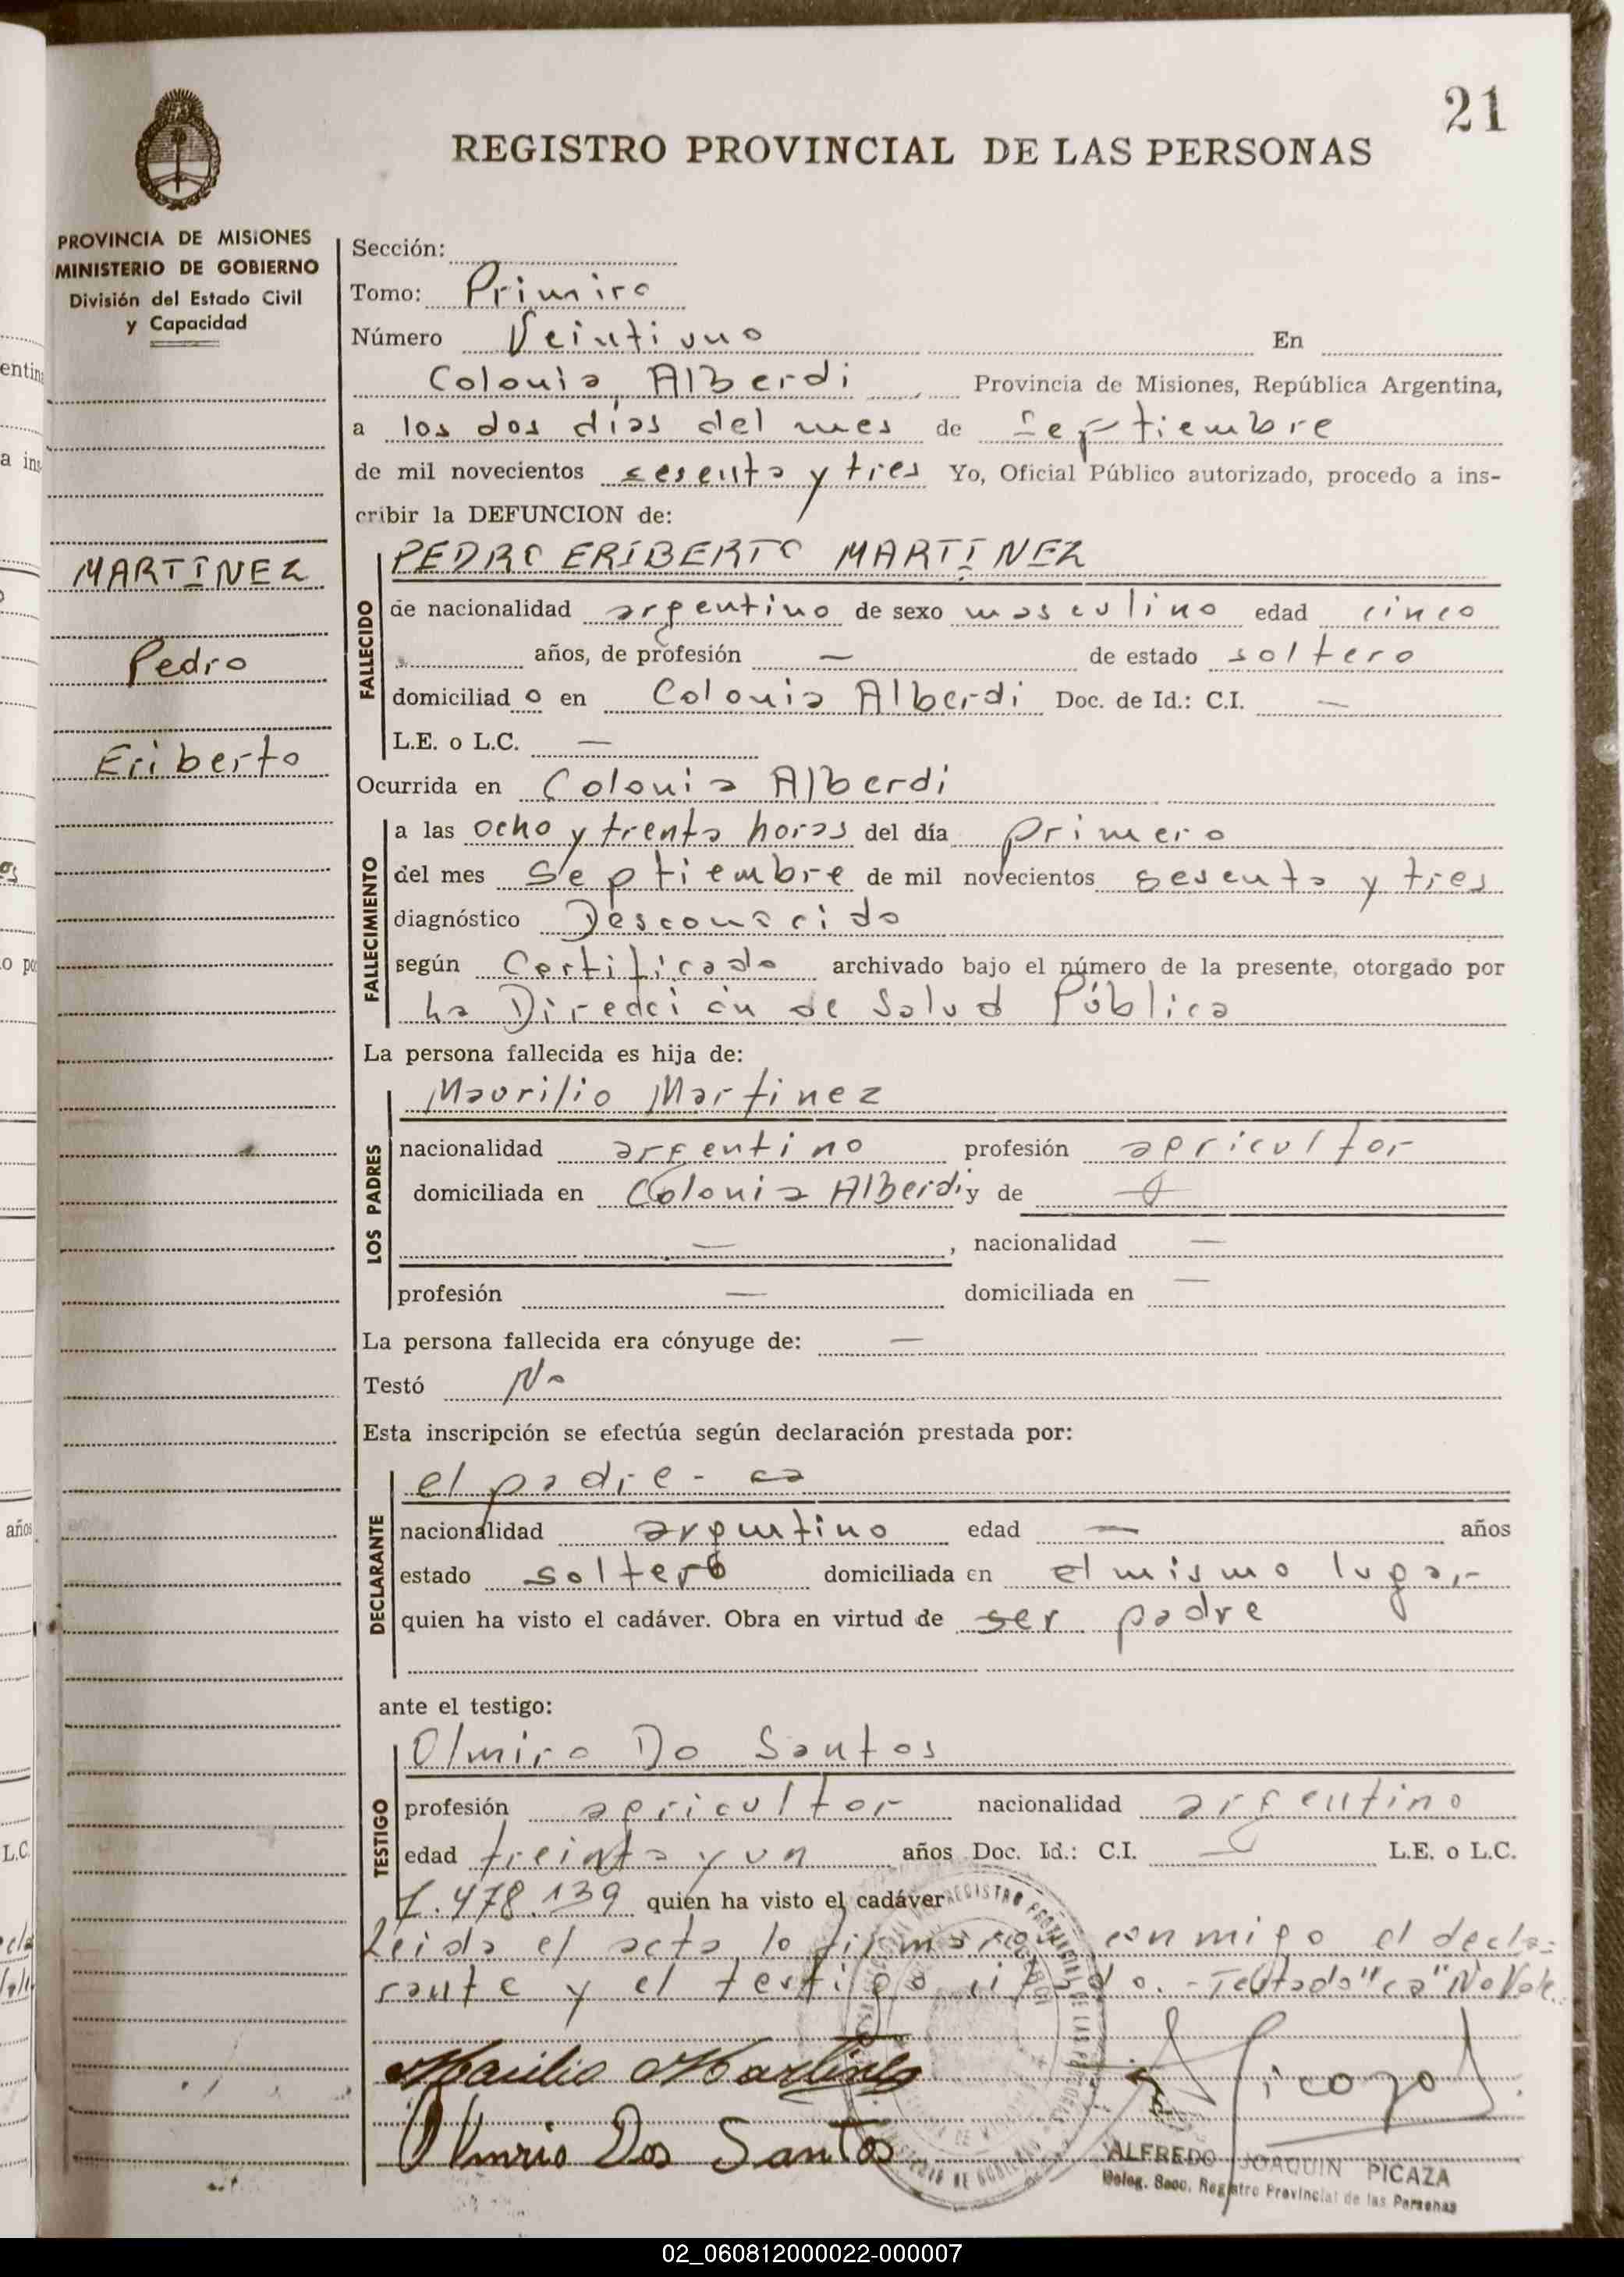 21
REGISTRO PROVINCIAL DE LAS PERSONAS
PROVINCIA DE MISIONES
MINISTERIO DE GOBIERNO
División del Estado Civil
y Capacidad
Sección:
Tomo: Primero
Número Veintiuno En
Colonia Alberdi Provincia de Misiones, República Argentina,
a los dos días del mes de Septiembre
de mil novecientos sesenta y tres Yo, Oficial Público autorizado, procedo a ins-
cribir la DEFUNCION de:
MARTINEZ
Pedro
Eriberto
FALLECIDO
PEDRO ERIBERTO MARTINEZ
de nacionalidad argentino de sexo masculino edad cinco
años, de profesión — de estado soltero
domiciliad o en Colonia Alberdi Doc. de Id.: C.I. —
L.E. o L.C. —
Ocurrida en Colonia Alberdi
FALLECIMIENTO
a las ocho y trenta horas del día primero
del mes Septiembre de mil novecientos sesenta y tres
diagnóstico Desconocido
según Certificado archivado bajo el número de la presente, otorgado por
La Dirección de Salud Pública
La persona fallecida es hija de:
LOS PADRES
Maurilio Martinez
nacionalidad argentino profesión agricultor
domiciliada en Colonia Alberdi y de —
—, nacionalidad —
profesión — domiciliada en —
La persona fallecida era cónyuge de: —
Testó No
Esta inscripción se efectúa según declaración prestada por:
DECLARANTE
el padre - ca
nacionalidad argentino edad — años
estado soltero domiciliada en el mismo lugar
quien ha visto el cadáver. Obra en virtud de ser padre
ante el testigo:
TESTIGO
Olmiro Do Santos
profesión agricultor nacionalidad argentino
edad treinta y un años Doc. Id.: C.I. — L.E. o L.C.
7.478.139 quien ha visto el cadáver
Leida el acta lo firmaron conmigo el decla-
rante y el testigo citado. - Testado "ca" No Vale.
Maurilio Martinez
Olmirio Dos Santos
ALFREDO JOAQUIN PICAZA
Deleg. Secc. Registro Provincial de las Personas
02_060812000022-000007